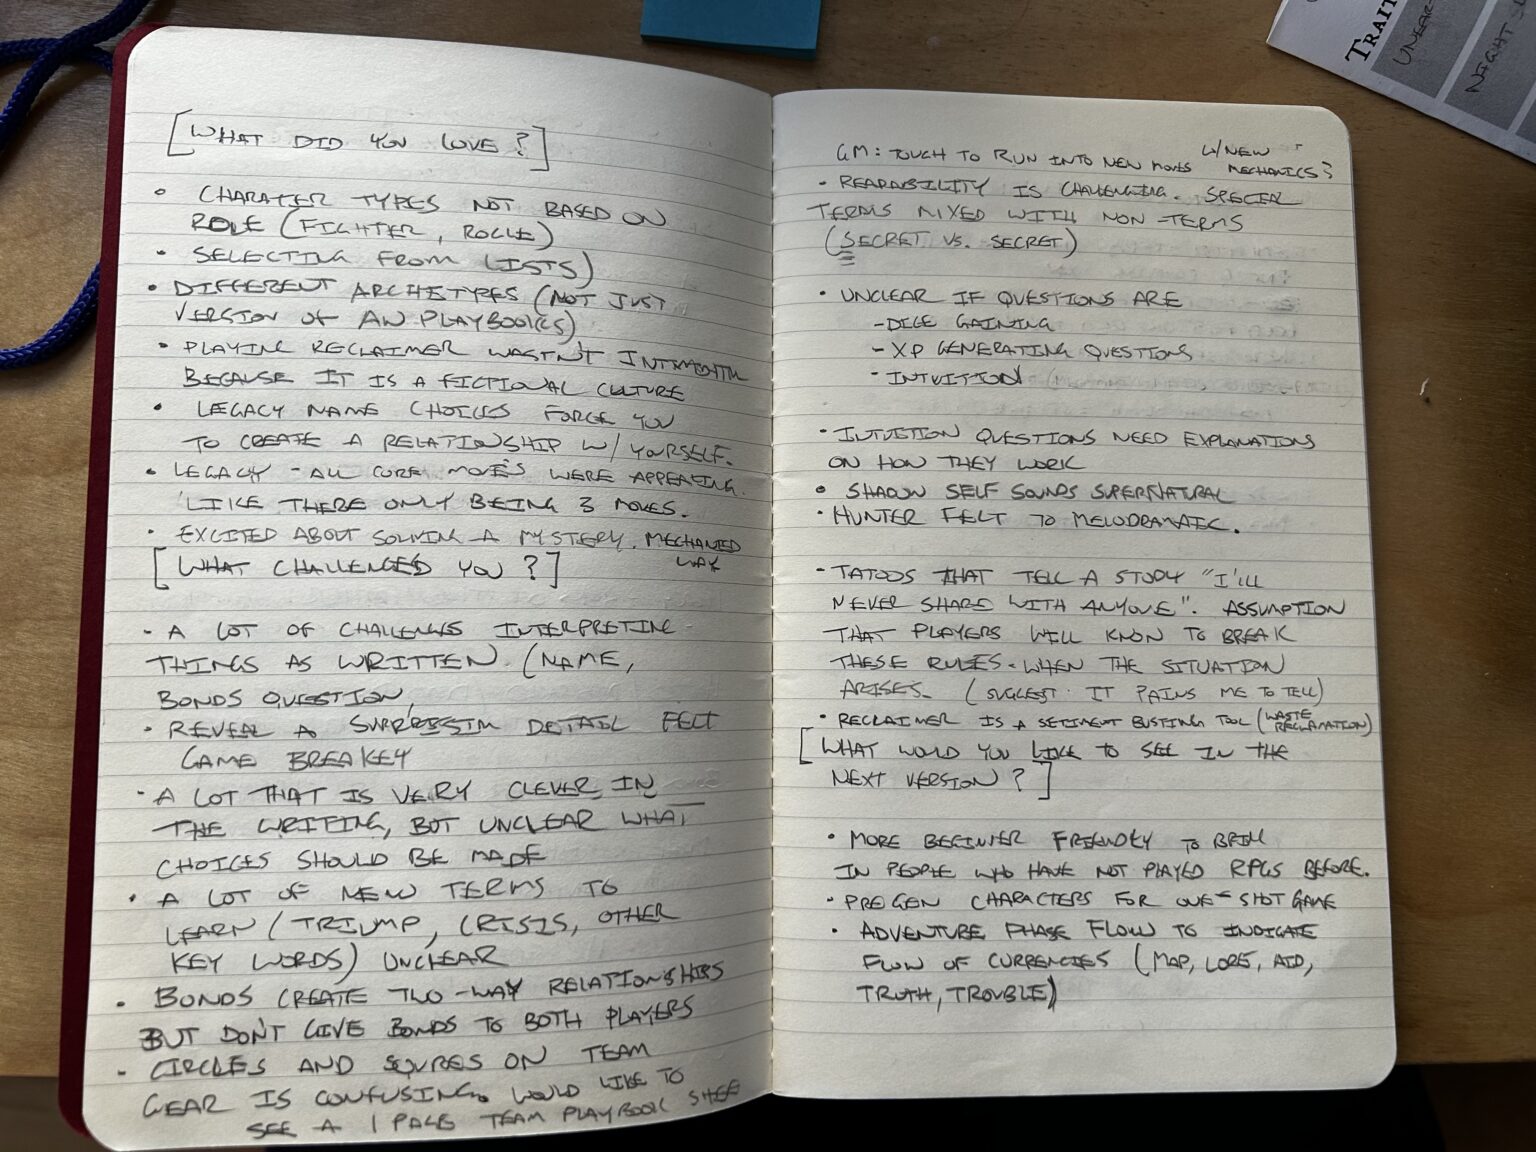 [WHAT DID YOU LOVE?]
• CHARATER TYPES NOT BASED ON
ROLE (FIGHTER, ROGUE)
• SELECTING FROM LISTS)
• DIFFERENT ARCHETYPES (NOT JUST
VERSION OF AW PLAYBOOKS)
• PLAYING RECLAIMER WASTN'T
BECAUSE IT IS A FICTIONAL CULTURE
• LEGACY NAME CHOICES FORCE YOU
TO CREATE A RELATIONSHIP W/ YOURSELF.
• LEGACY - ALL CORE MOVES WERE APPEALING.
LIKE THERE ONLY BEING 3 MOVES.
• EXCITED ABOUT SOLVING A MYSTERY. MECHANICED
WAY
[WHAT CHALLENGED YOU?]
- A LOT OF CHALLENGES INTERPRETING
THINGS AS WRITTEN. (NAME,
BONDS QUESTION,
• REVEAL A DETAIL FELT
GAME BREAKEY
• A LOT THAT IS VERY CLEVER IN
THE WRITING, BUT UNCLEAR WHAT
CHOICES SHOULD BE MADE
• A LOT OF NEW TERMS TO
LEARN (TRIUMP, CRISIS, OTHER
KEY WORDS) UNCLEAR
• BONDS CREATE TWO-WAY RELATIONSHIPS
BUT DON'T GIVE BONDS TO BOTH PLAYERS
- CIRCLES AND SQURES ON TEAM
GEAR IS CONFUSING. WOULD LIKE TO
SEE A 1 PAGE TEAM PLAYBOOK SHEE
GM: TOUGH TO RUN INTO NEW MOVES W/NEW
MECHANICS?
• READABILITY IS CHALLENGING. SPECIAL
TERMS MIXED WITH NON-TERMS
(SECRET VS. SECRET)
• UNCLEAR IF QUESTIONS ARE
- DICE GAINING
- XP GENERATING QUESTIONS
- INTUITION
• INTUITION QUESTIONS NEED EXPLANATIONS
ON HOW THEY WORK
• SHADOW SELF SOUNDS SUPERNATURAL
• HUNTER FELT TO MELODRAMATIC.
• TATOOS THAT TELL A STORY "I'LL
NEVER SHARE WITH ANYONE". ASSUMPTION
THAT PLAYERS WILL KNOW TO BREAK
THESE RULES. WHEN THE SITUATION
ARISES. (SUGGEST: IT PAINS ME TO TELL)
• RECLAIMER IS A SETIMENT BUSTING TOOL (WASTE
RECLAMATION)
[WHAT WOULD YOU LIKE TO SEE IN THE
NEXT VERSION?]
• MORE BEGINNER FRIENDLY TO BRING
IN PEOPLE WHO HAVE NOT PLAYED RPGS BEFORE.
• PREGEN CHARACTERS FOR ONE-SHOT GAME
• ADVENTURE PHASE FLOW TO INDICATE
FLOW OF CURRENCIES (MAP, LORE, AID,
TRUTH, TROUBLE)
TRAIT
UNEAR
NIGHT